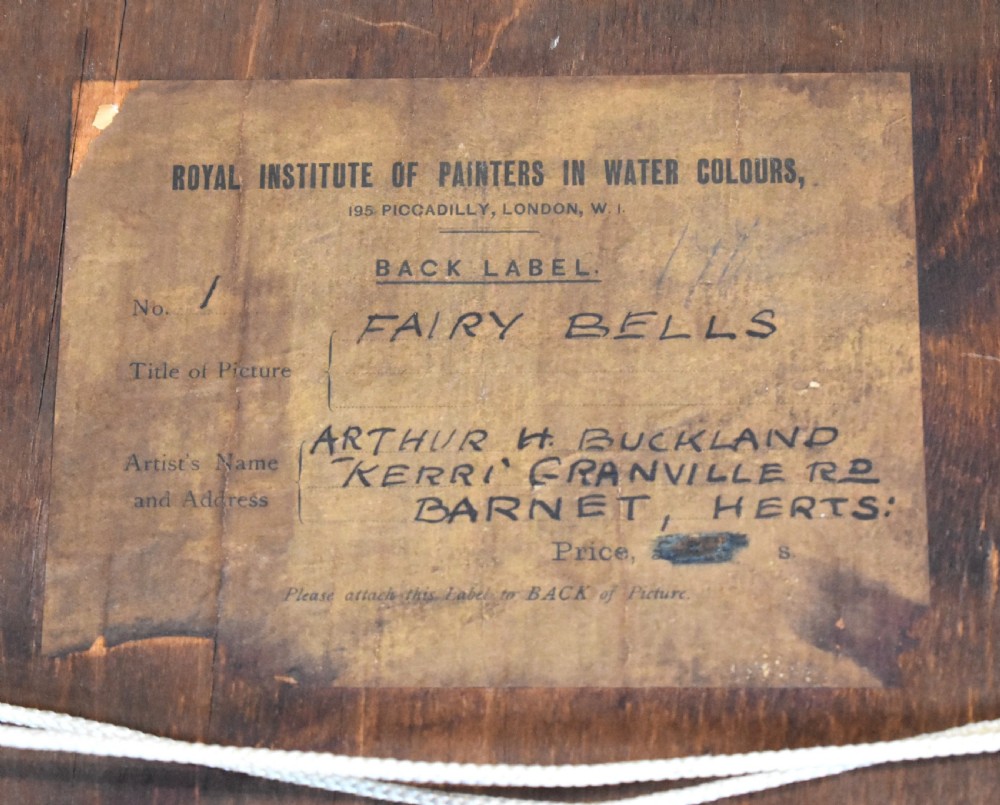 ROYAL INSTITUTE OF PAINTERS IN WATER COLOURS,
195 PICCADILLY, LONDON, W. 1.
BACK LABEL.
No. 1
FAIRY BELLS
Title of Picture
ARTHUR H. BUCKLAND
Artist's Name
"KERRI' GRANVILLE RD
and Address
BARNET, HERTS:
Price, s.
Please attach this Label to BACK of Picture.